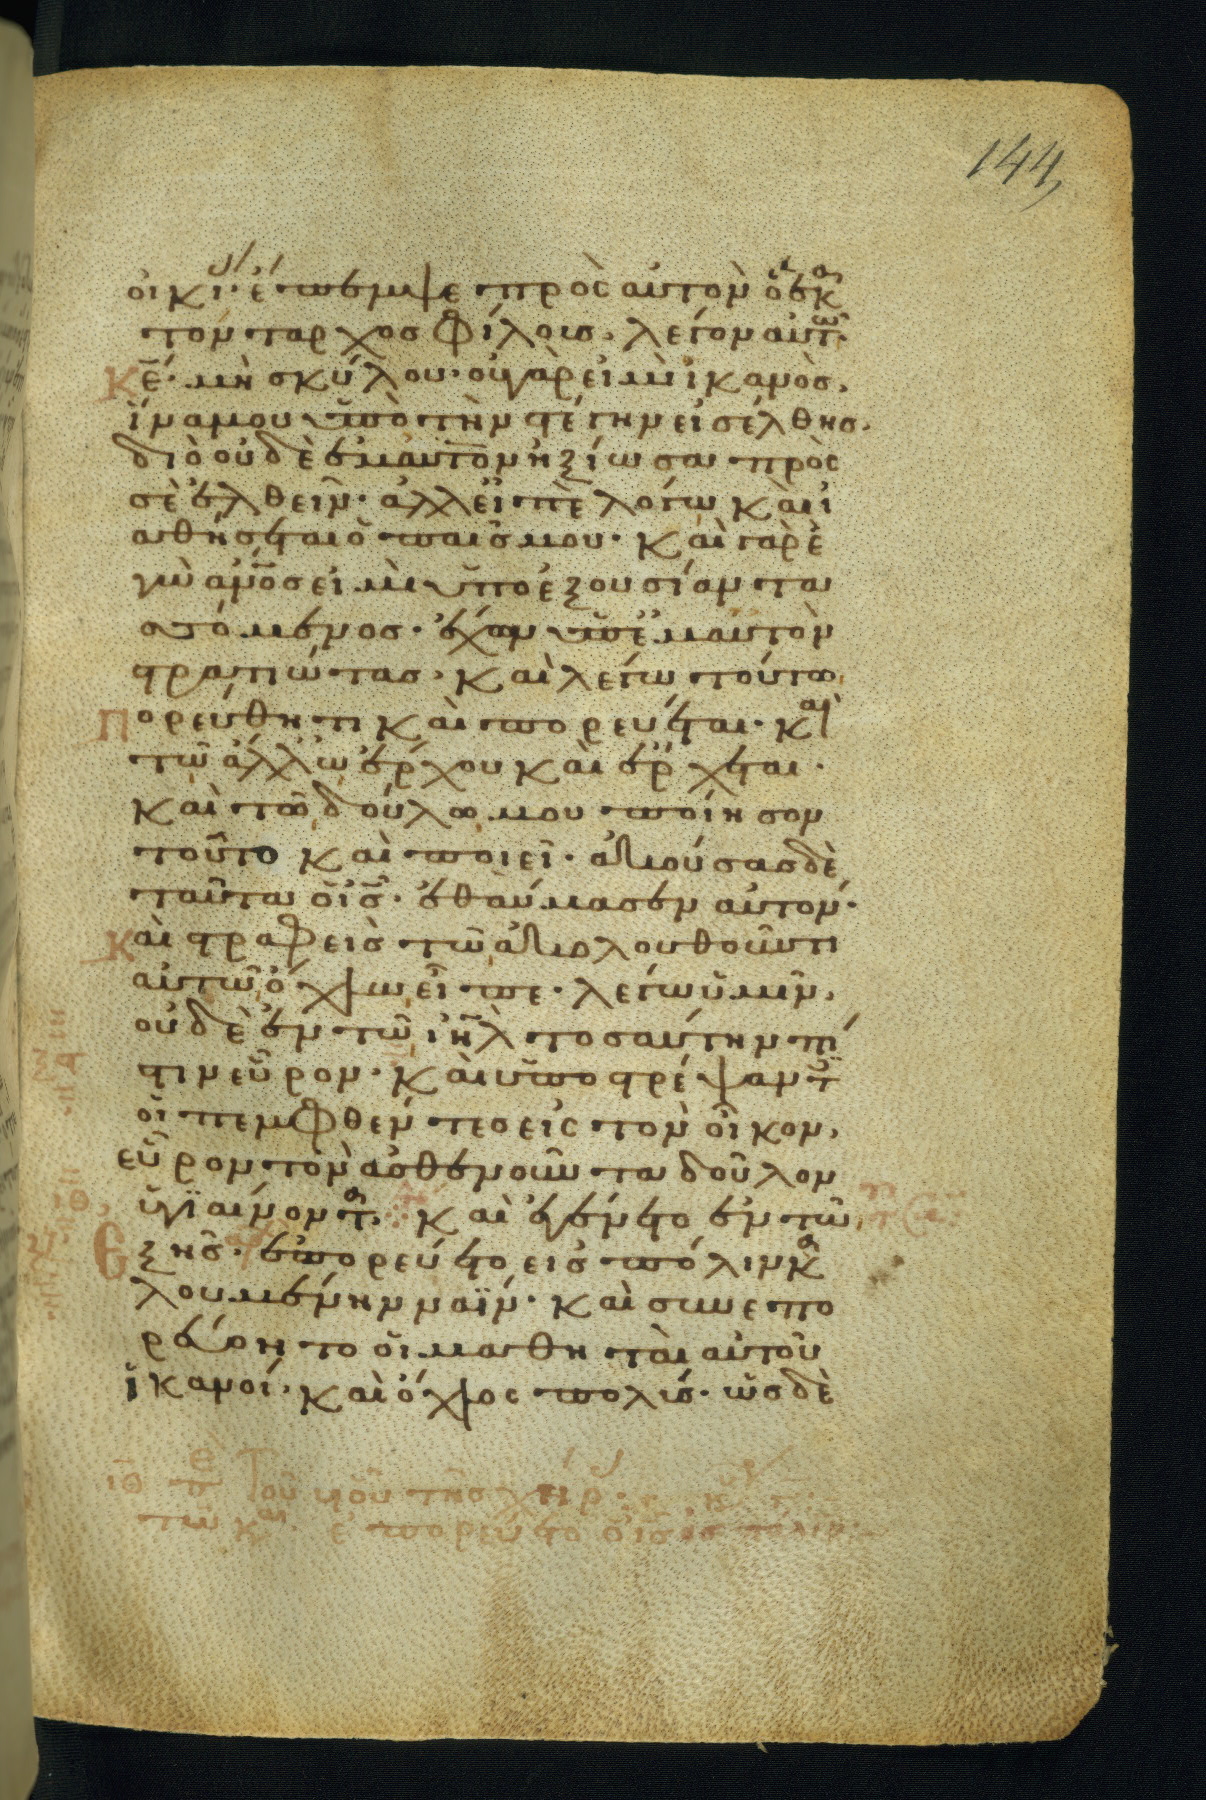 144
οικί· ἔπεμψε πρὸς αὐτὸν ὁ ἑκα
τόνταρχος φίλους, λέγων αὐτῶ·
κε̄· μὴ σκύλου· οὐ γὰρ εἰμὶ ἱκανὸς,
ἵνα μου ὑπὸ τὴν στέγην εἰσέλθης.
διὸ οὐδὲ ἐμαυτὸν ἠξίωσα πρὸς
σὲ ἐλθεῖν· ἀλλ εἰπὲ λόγω καὶ ἰ
αθήσεται ὁ παῖς μου· καὶ γὰρ ἐ
γὼ ἄνος εἰμὶ ὑπὸ ἐξουσίαν τα
σσόμενος· ἔχων ὑπ ἐμαυτὸν
στρατιώτας· καὶ λέγω τούτω
πορεύθητι καὶ πορεύεται· καὶ
τῶ ἄλλω ἔρχου καὶ ἔρχεται·
καὶ τῶ δούλω μου ποίησον
τοῦτο καὶ ποιεῖ· ἀκούσας δὲ
ταῦτα ὁ ις̄· ἐθαύμασεν αὐτόν·
καὶ στραφεὶς τῶ ἀκολουθοῦντι
αὐτῶ ὄχλω εἶπε· λέγω ὑμῖν,
οὐδὲ ἐν τῶ ιηλ τοσαύτην πί
στιν εὗρον· καὶ ὑποστρέψαντες
οἱ πεμφθέντες εἰς τὸν οἶκον,
εὗρον τὸν ἀσθενοῦντα δοῦλον
ὑγιαίνοντα. καὶ ἐγένετο ἐν τῶ
ἑξῆς· ἐπορεύετο εἰς πόλιν κα
λουμένην ναΐν· καὶ συνεπο
ρεύοντο οἱ μαθηταὶ αὐτοῦ
ἱκανοί· καὶ ὄχλος πολύς· ὡς δὲ
ιθ Τοῦ υἱοῦ τῆς χήρ
τῶ και ἐπορεύετο ὁ ις̄ εἰς πόλιν